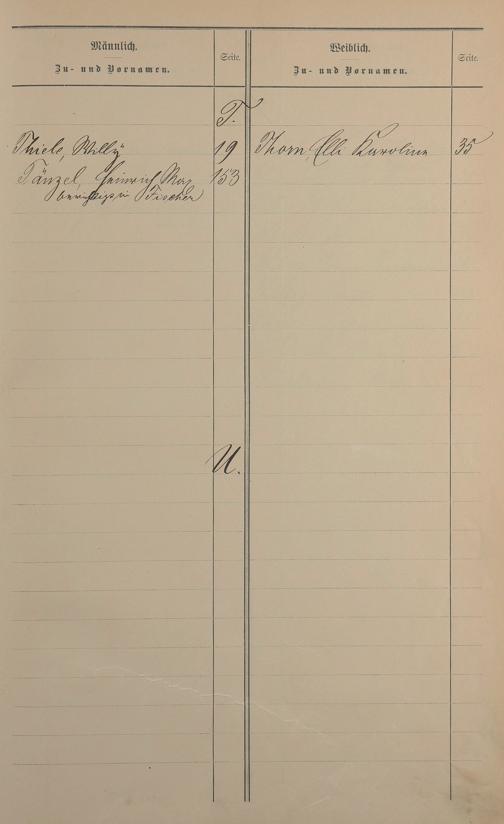 Männlich.
Zu- und Vornamen.
Seite.
Weiblich.
Zu- und Vornamen.
Seite.
T.
Thiele, Willy 19
Thorn, Elli Karoline 35
Tänzel, Heinrich Max 153
berichtigt in Fischer
U.